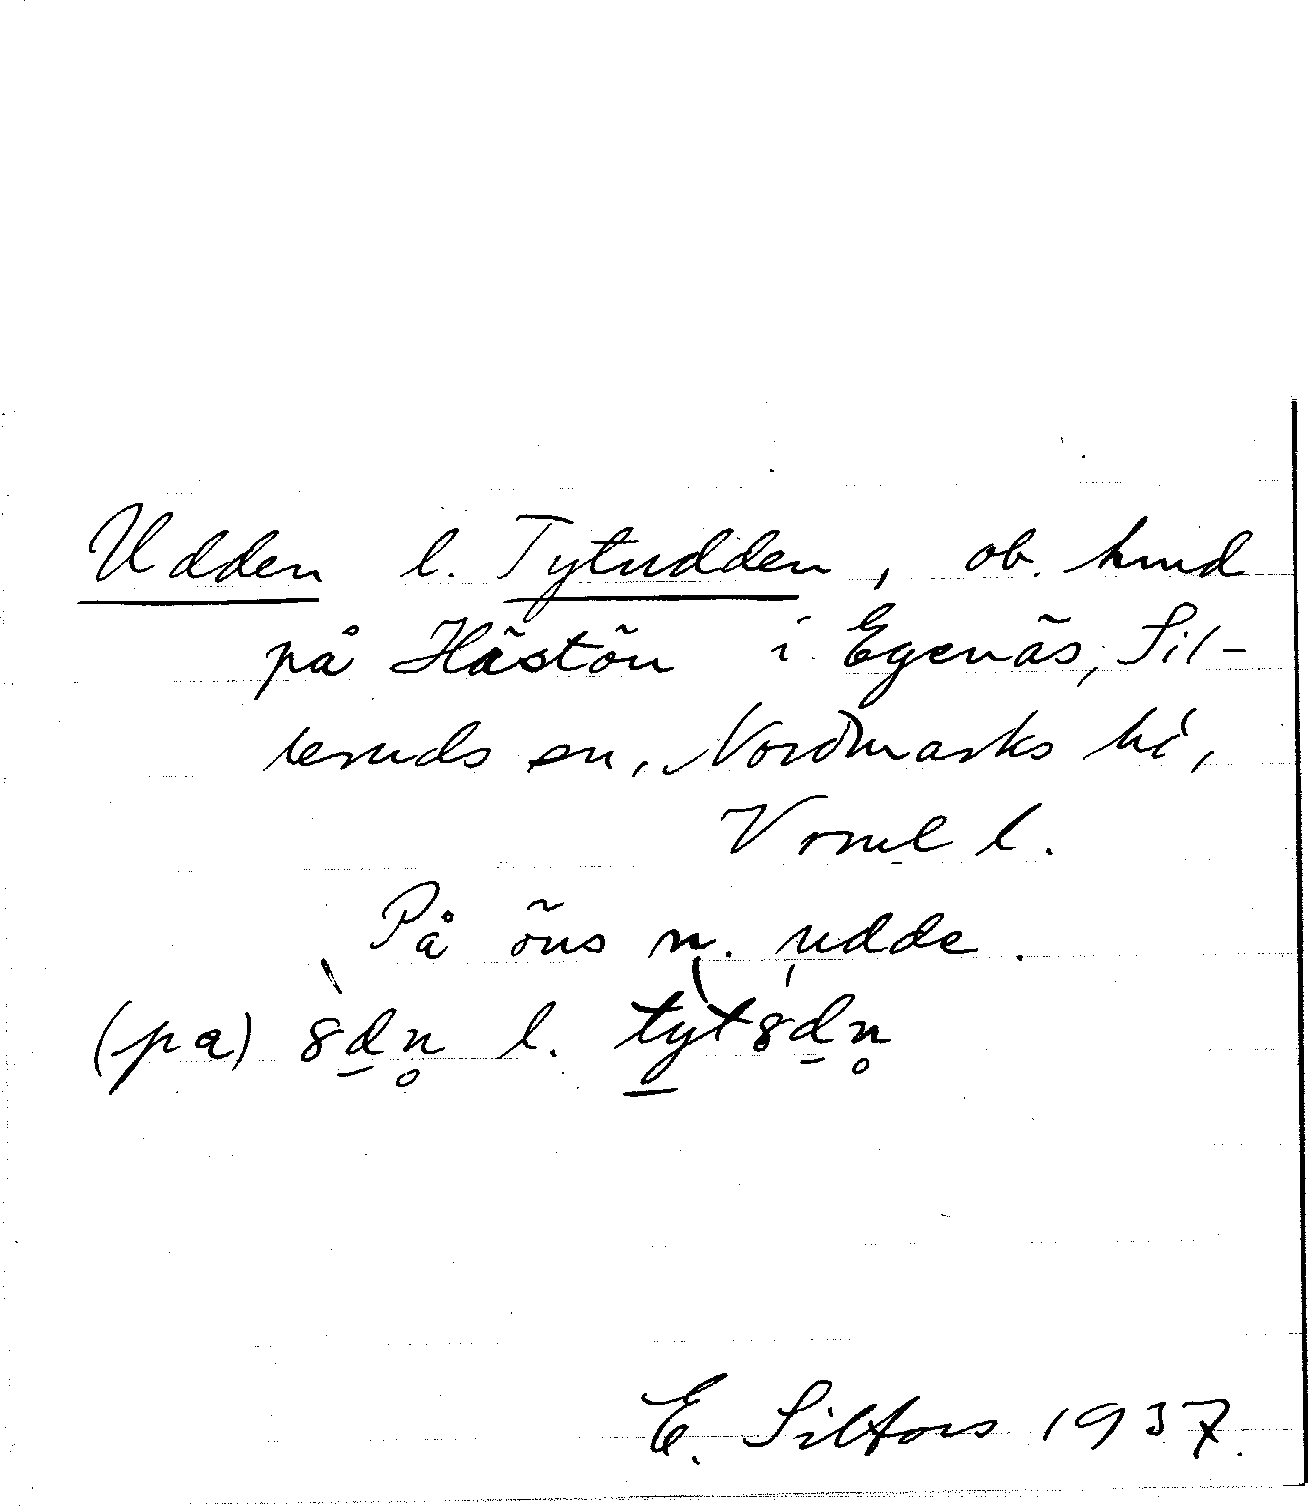 Udden l. Tytudden, ob. hmd
på Hästön i Egenäs, Sil-
leruds sn, Nordmarks hd,
Vrml l.
På öns n. udde.
(pa) 8d̲n̥ l. tyt8d̲n̥
E. Silfors 1937.